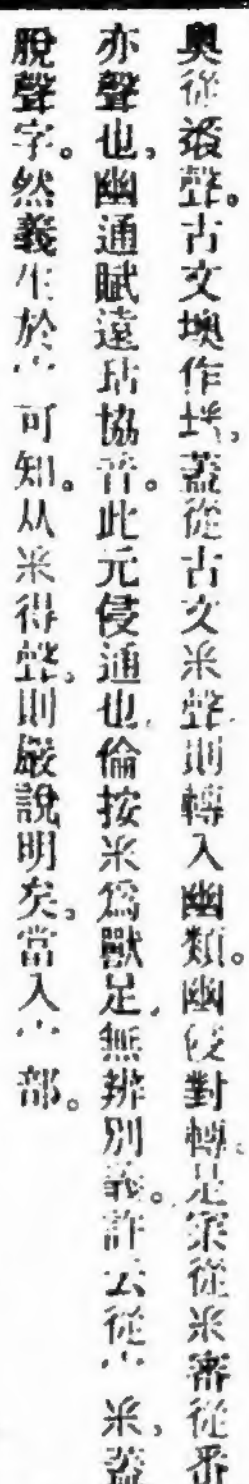 奧從𢍏聲。古文墺作垰,蓋從古文釆聲則轉入幽類。幽侵對轉。是宷從釆審從番
亦聲也,幽通賦遠玷協音。此元侵通也,倫按釆爲獸足,無辨別義。許云從宀釆,蓋
脫聲字。然義生於宀可知。从釆得聲。則嚴說明矣。當入宀部。